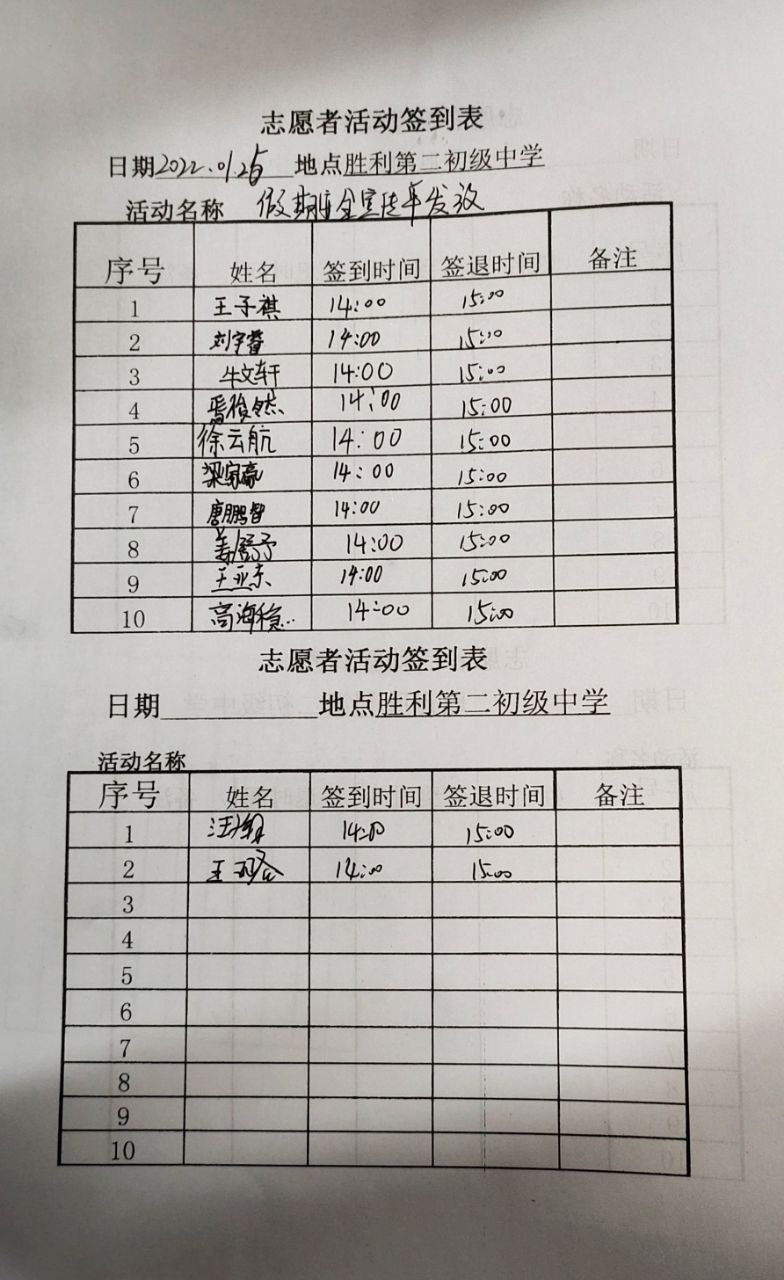 志愿者活动签到表
日期2022.01.25 地点胜利第二初级中学
活动名称 假期安全宣传单发放
序号 姓名 签到时间 签退时间 备注
1 王子祺 14:00 15:00
2 刘宇睿 14:00 15:00
3 牛文轩 14:00 15:00
4 俊然 14:00 15:00
5 徐云航 14:00 15:00
6 梁家豪 14:00 15:00
7 唐鹏智 14:00 15:00
8 姜舒予 14:00 15:00
9 王亚东 14:00 15:00
10 高海稳 14:00 15:00
志愿者活动签到表
日期 地点胜利第二初级中学
活动名称
序号 姓名 签到时间 签退时间 备注
1 14:00 15:00
2 王 14:00 15:00
3
4
5
6
7
8
9
10